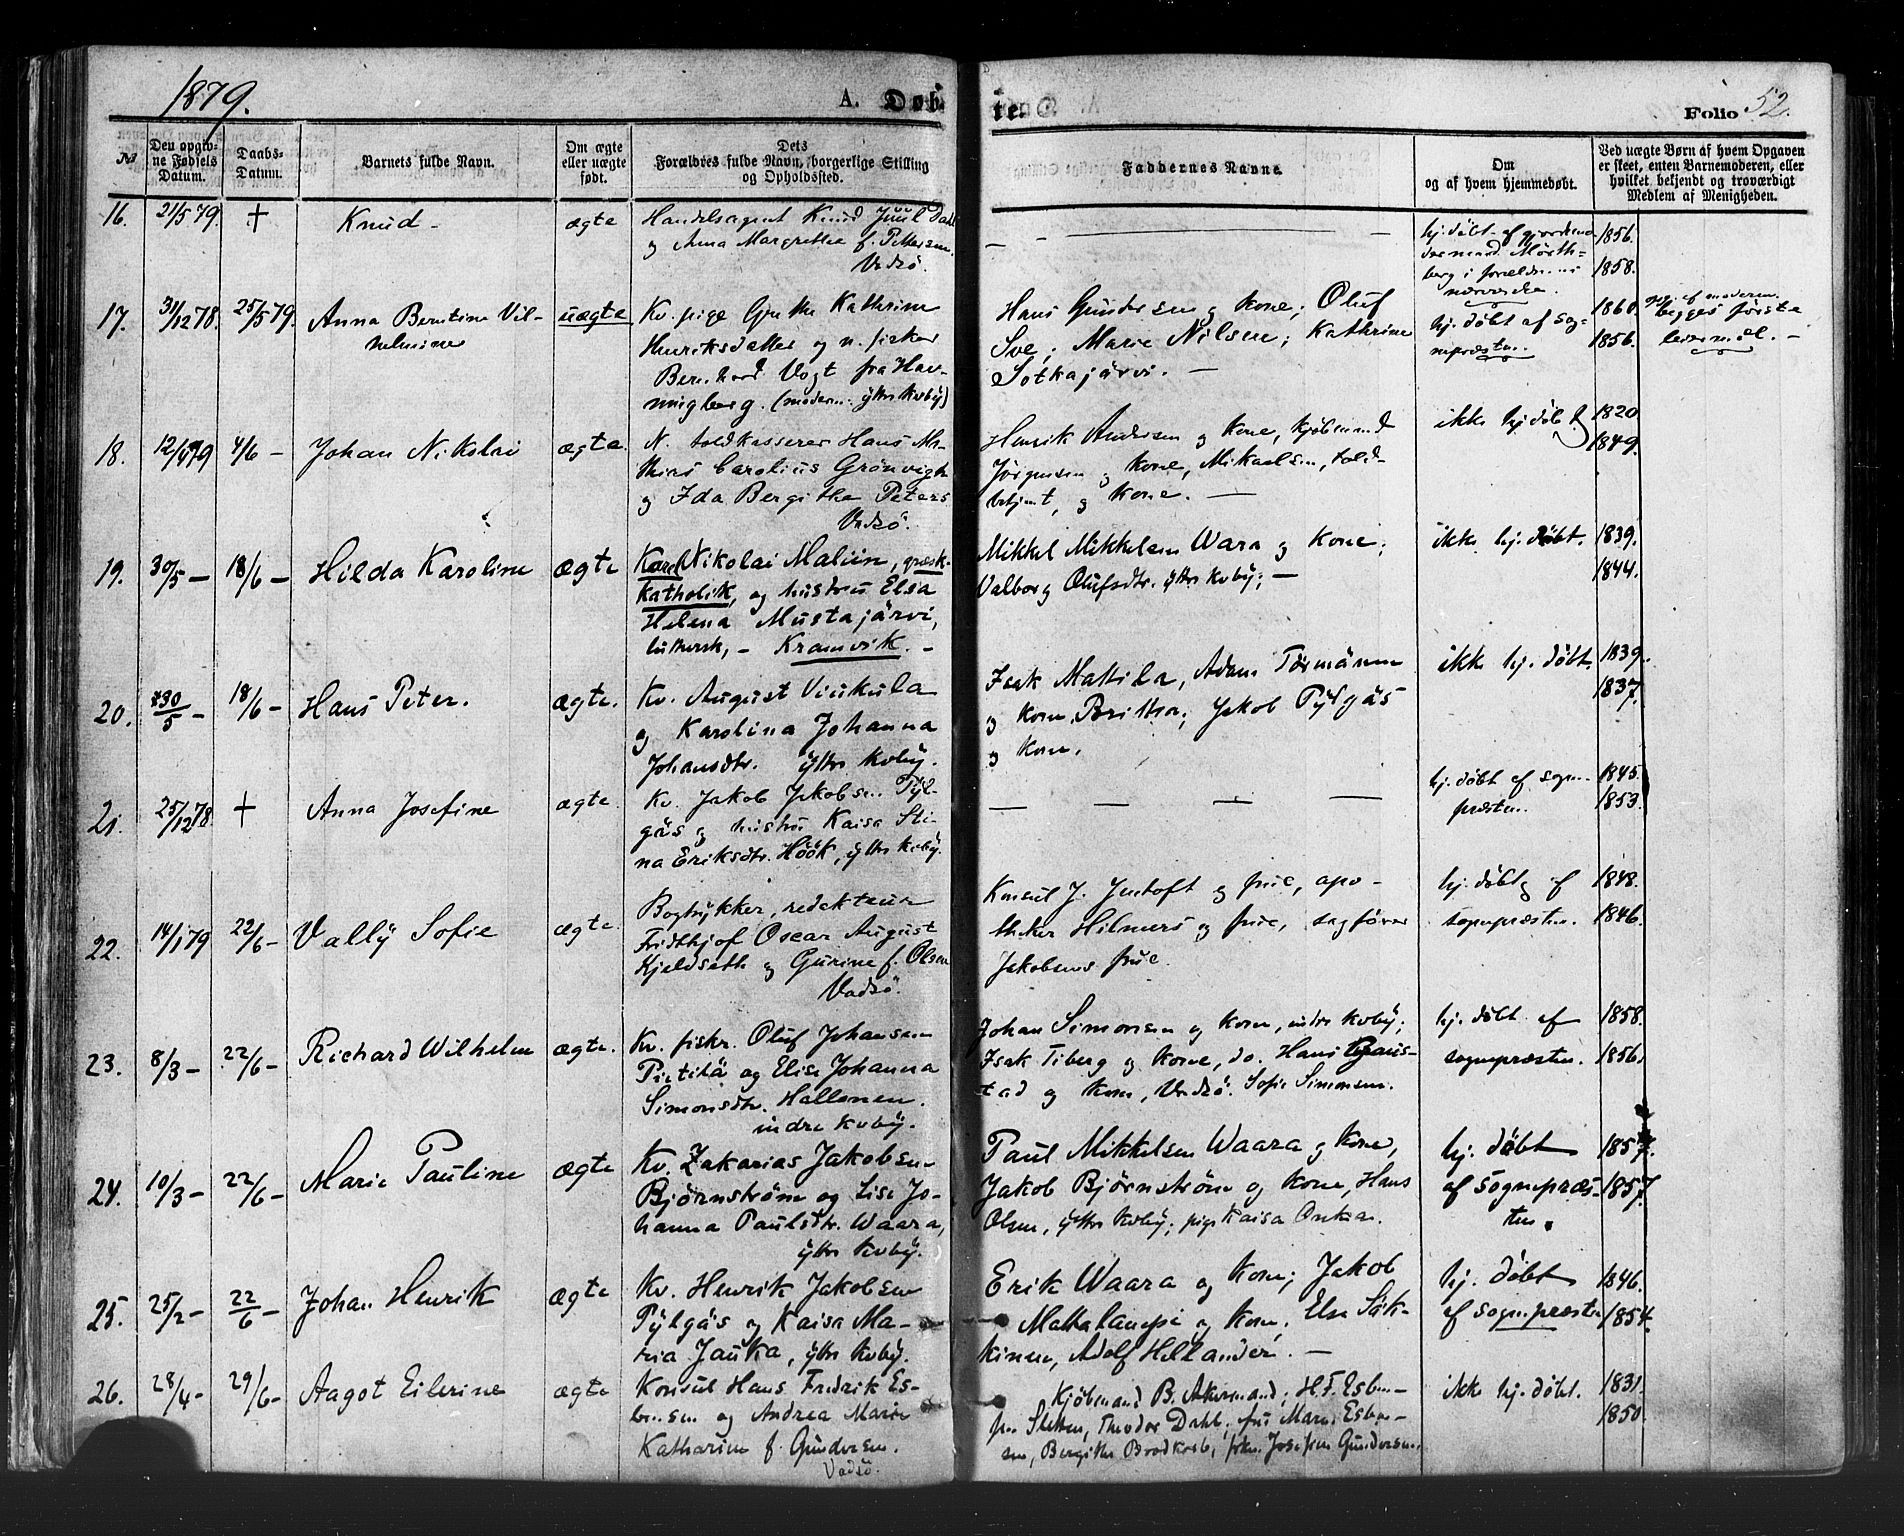 1879.
A. Døb-
te.
Folio 52.
No
Den opgiv-
ne Fødsels
Datum.
Daabs-
Datum.
Barnets fulde Navn.
Om ægte
eller uægte
født.
Dets
Forældres fulde Navn, borgerlige Stilling
og Opholdssted.
Faddernes Navne.
Om
og af hvem hjemmedøbt.
Ved uægte Børn af hvem Opgaven
er skeet, enten Barnemoderen, eller
hvilket bekjendt og troværdigt
Medlem af Menigheden.
16. 21/5 79. + Knud - ægte
Handelsagent Knud Juul Dahl
og Anna Margrethe f. Pettersen
Vadsö.
hj. döbt af
berg i
1856.
1858.
17. 31/12 78. 25/5 79. Anna Berntine Vil-
helmine
uægte
Kv. pige Grethe Kathrine
Henriksdatter og n. fisker
Bernhard Vogt fra Hav-
ningberg. (moderen: ytre Kvby)
Hans Gundersen og Kone; Oluf
Sve; Marie Nilsen; Kathrine
Sotkajärvi. -
hj. döbt af sog-
nepræsten.
1860.
1856.
af moderen.
begges förste
leiermål. -
18. 12/4 79 4/6 - Johan Nikolai ægte.
N. toldkasserer Hans Ma-
thias Carolius Grönvigh
og Ida Bergithe Peters
Vadsö.
Henrik Andersen og Kone, kjöbmand
Jörgensen og Kone, Mikaelsen, told-
betjent, og Kone. -
ikke hj. döbt
1820
1849.
19. 30/5 - 18/6 - Hilda Karoline ægte
Karel Nikolai Maliin, græsk-
katholik, og hustru Elsa
Helena Mustajärvi,
luthersk, - Kramvik. -
Mikkel Mikkelsen Wara og Kone;
Valborg Olufsdtr. ytre Kvby; -
ikke hj. döbt.
1839.
1844.
20. 30/5 - 18/6 - Hans Peter. ægte.
Kv. August Viinkula
og Karolina Johanna
Johansdtr. ytre Kvby.
Isak Mattila, Adam Törmänen
og Kone Britha; Jakob Pylgäs
og Kone.
ikke hj. döbt.
1839.
1837.
21. 25/12 78. + Anna Josefine ægte.
Kv. Jakob Jakobsen Pyl-
gäs og hustru Kaisa Sti-
na Eriksdtr. Höök, ytre Kvby.
hj. döbt af sogne-
præsten.
1845.
1853.
22. 14/1 79 22/6 - Vally Sofie ægte.
Bogtrykker, redakteur
Fridthjof Oscar August
Kjeldseth og Gurine f. Olsen
Vadsö.
Konsul J. Jentoft og frue, apo-
theker Hilmers og frue, sagförer
Jakobsens frue.
hj. döbt af
sognepræsten.
1848.
1846.
23. 8/3 - 22/6 - Richard Wilhelm ægte.
Kv. fiskr. Oluf Johansen
Pietilä og Elise Johanna
Simonsdtr. Hallonen.
indre Kvby.
Johan Simonsen og Kone, indre Kvby;
Isak Tiberg og Kone, do. Hans Gjaus-
tad og Kone, Vadsö. Sofie Simonsen.
hj. döbt af
sognepræsten.
1858.
1856.
24. 10/3 - 22/6 - Marie Pauline ægte
Kv. Zakarias Jakobsen
Bjørnstrøm og Lise Jo-
hanna Paulsdtr. Waara,
ytre Kvby.
Paul Mikkelsen Waara og Kone,
Jakob Bjørnstrøm og Kone, Hans
Olsen, ytre Kvby; pige Kaisa Onkan.
hj. döbt
af sognepræs-
ten.
1857.
1857.
25. 25/2 - 22/6 - Johan Henrik ægte
Kv. Henrik Jakobsen
Pylgäs og Kaisa Ma-
tria Jauka, ytre Kvby.
Erik Waara og Kone; Jakob
Mattalampi og Kone, Else Säk-
kinen, Adolf Hellander. -
hj. döbt
af sognepræsten
1846.
1854.
26. 28/4 - 29/6 - Aagot Eilerine ægte
Konsul Hans Fredrik Es-
bensen og Andrea Marie
Katharine f. Gundersen.
Vadsö.
Kjöbmand B. Akermand; H.F. Esben-
sen, Theodor Dahl; fru Marie Esben-
sen, Bergithe Brodkorb, frkn. Josefine Gundersen.
ikke hj. döbt.
1831.
1850.